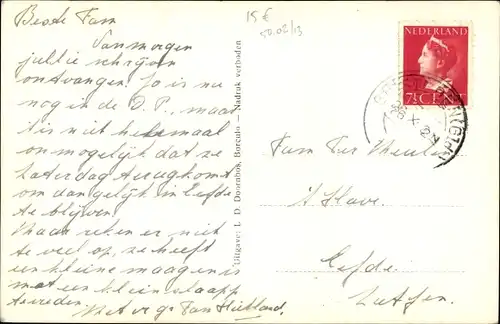 15 €
50.02/13
Beste Fam
Vanmorgen
jullie schrijven
ontvangen. Jo is nu
nog in de D.P., maar
't is niet helemaal
onmogelijk dat ze
Zaterdag terugkomt
om dan gelijk in Eefde
te blijven.
Maar reken er niet
te veel op, ze heeft
een kleine maag en is
met een klein
tevreden. Met vr gr Fam
Uitgave: L. D. Doornbos, Borculo — Nadruk verboden
NEDERLAND
7½ CENT
Fam Ter Meulen
't Have.
Eefde.
Zutfen.